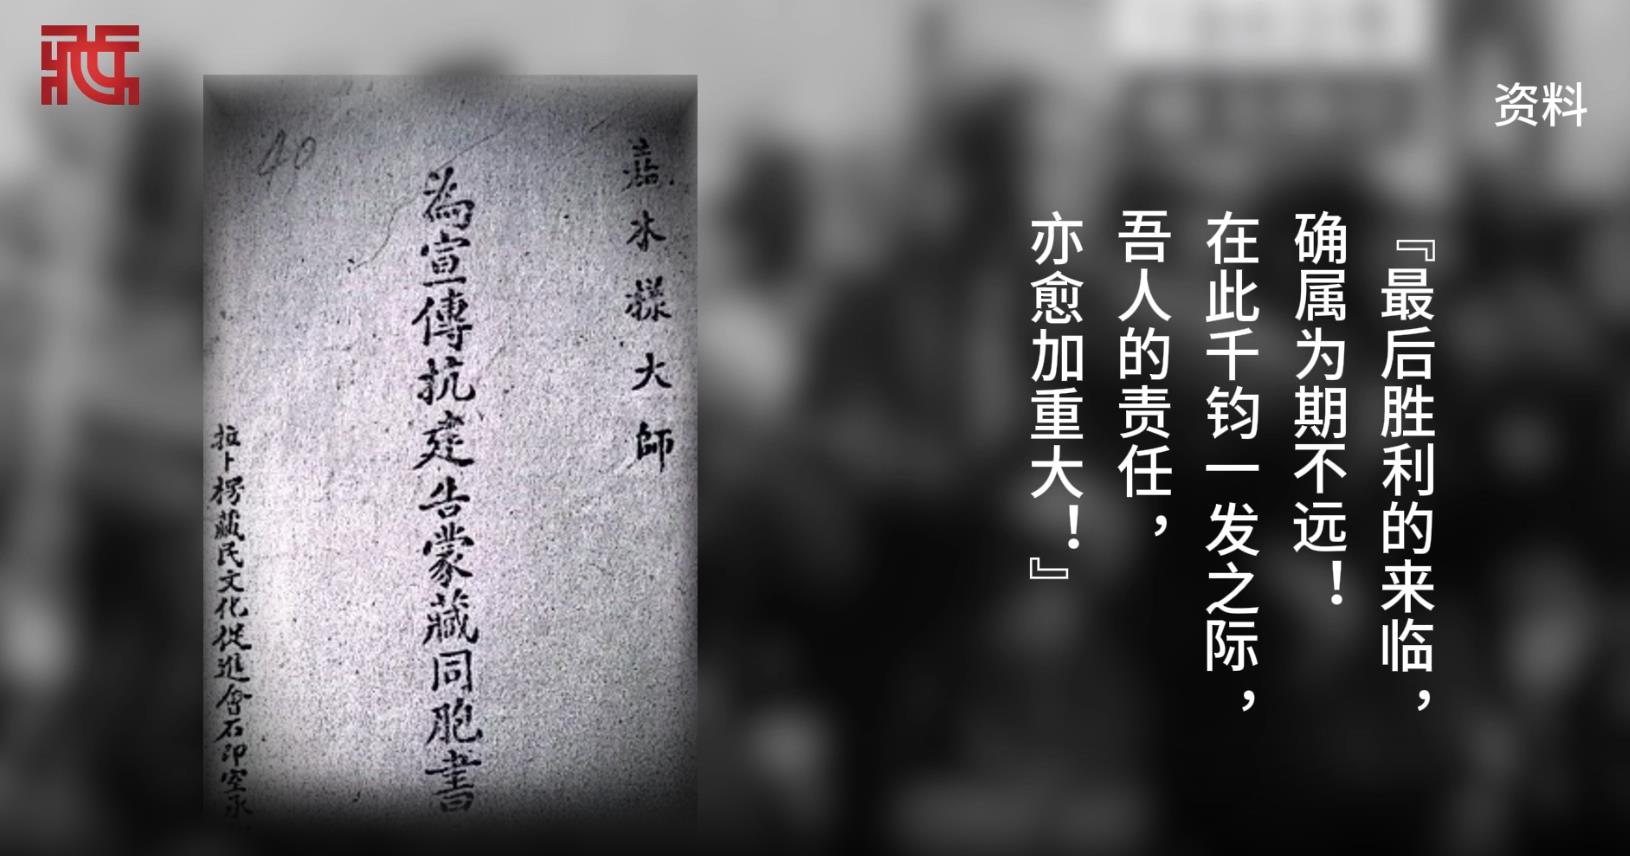 资料
『最后胜利的来临，
确属为期不远！
在此千钧一发之际，
吾人的责任，
亦愈加重大！』
嘉木樣大師
為宣傳抗建告蒙藏同胞書
拉卜楞藏民文化促進會石印室承
40